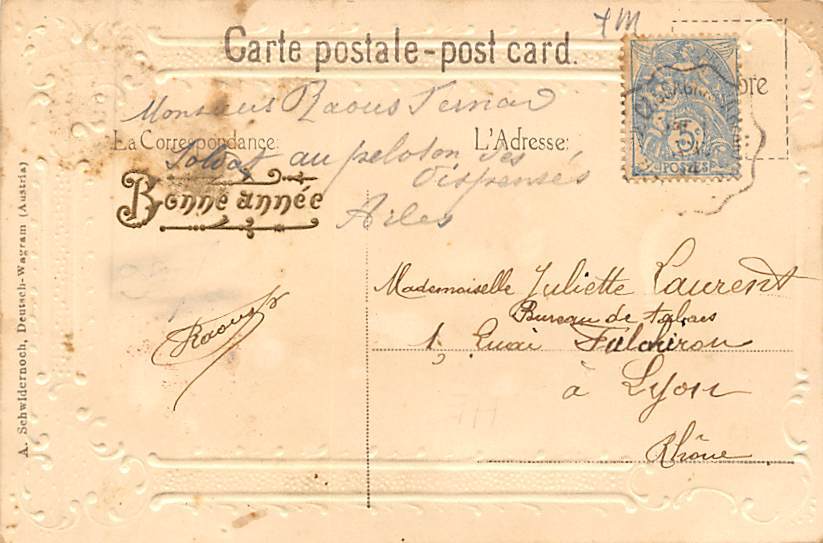 + M
Carte postale-post card.
Monsieur Raoul
La Correspondance:
L'Adresse:
Soldat au peloton des
dispensés
Arles
Bonne année
POSTES
Mademoiselle Juliette Laurent
Bureau de tabacs
1, Quai Fulchiron
à Lyon
Rhône
Raoul
A. Schwidernoch, Deutsch-Wagram (Austria)